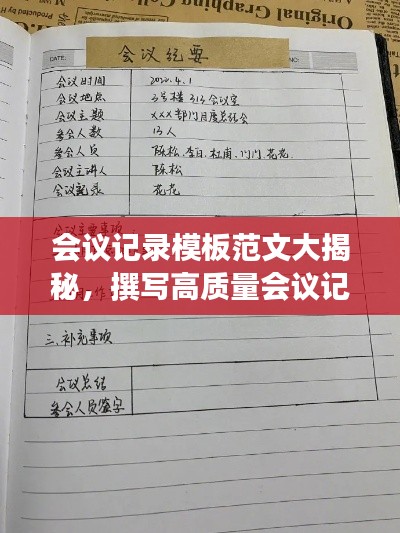 Original Graphic
DATE:
会议纪要
会议时间 2022.4.1
会议地点 3号楼 313会议室
会议主题 XXX部门月度总结会
参会人数 13人
参会人员 陈松、李白、杜甫、门门、花花
会议主讲人 陈松
会议记录 花花
会议记录模板范文大揭
秘，撰写高质量会议记
三、补充事项
会议总结
参会人员签字